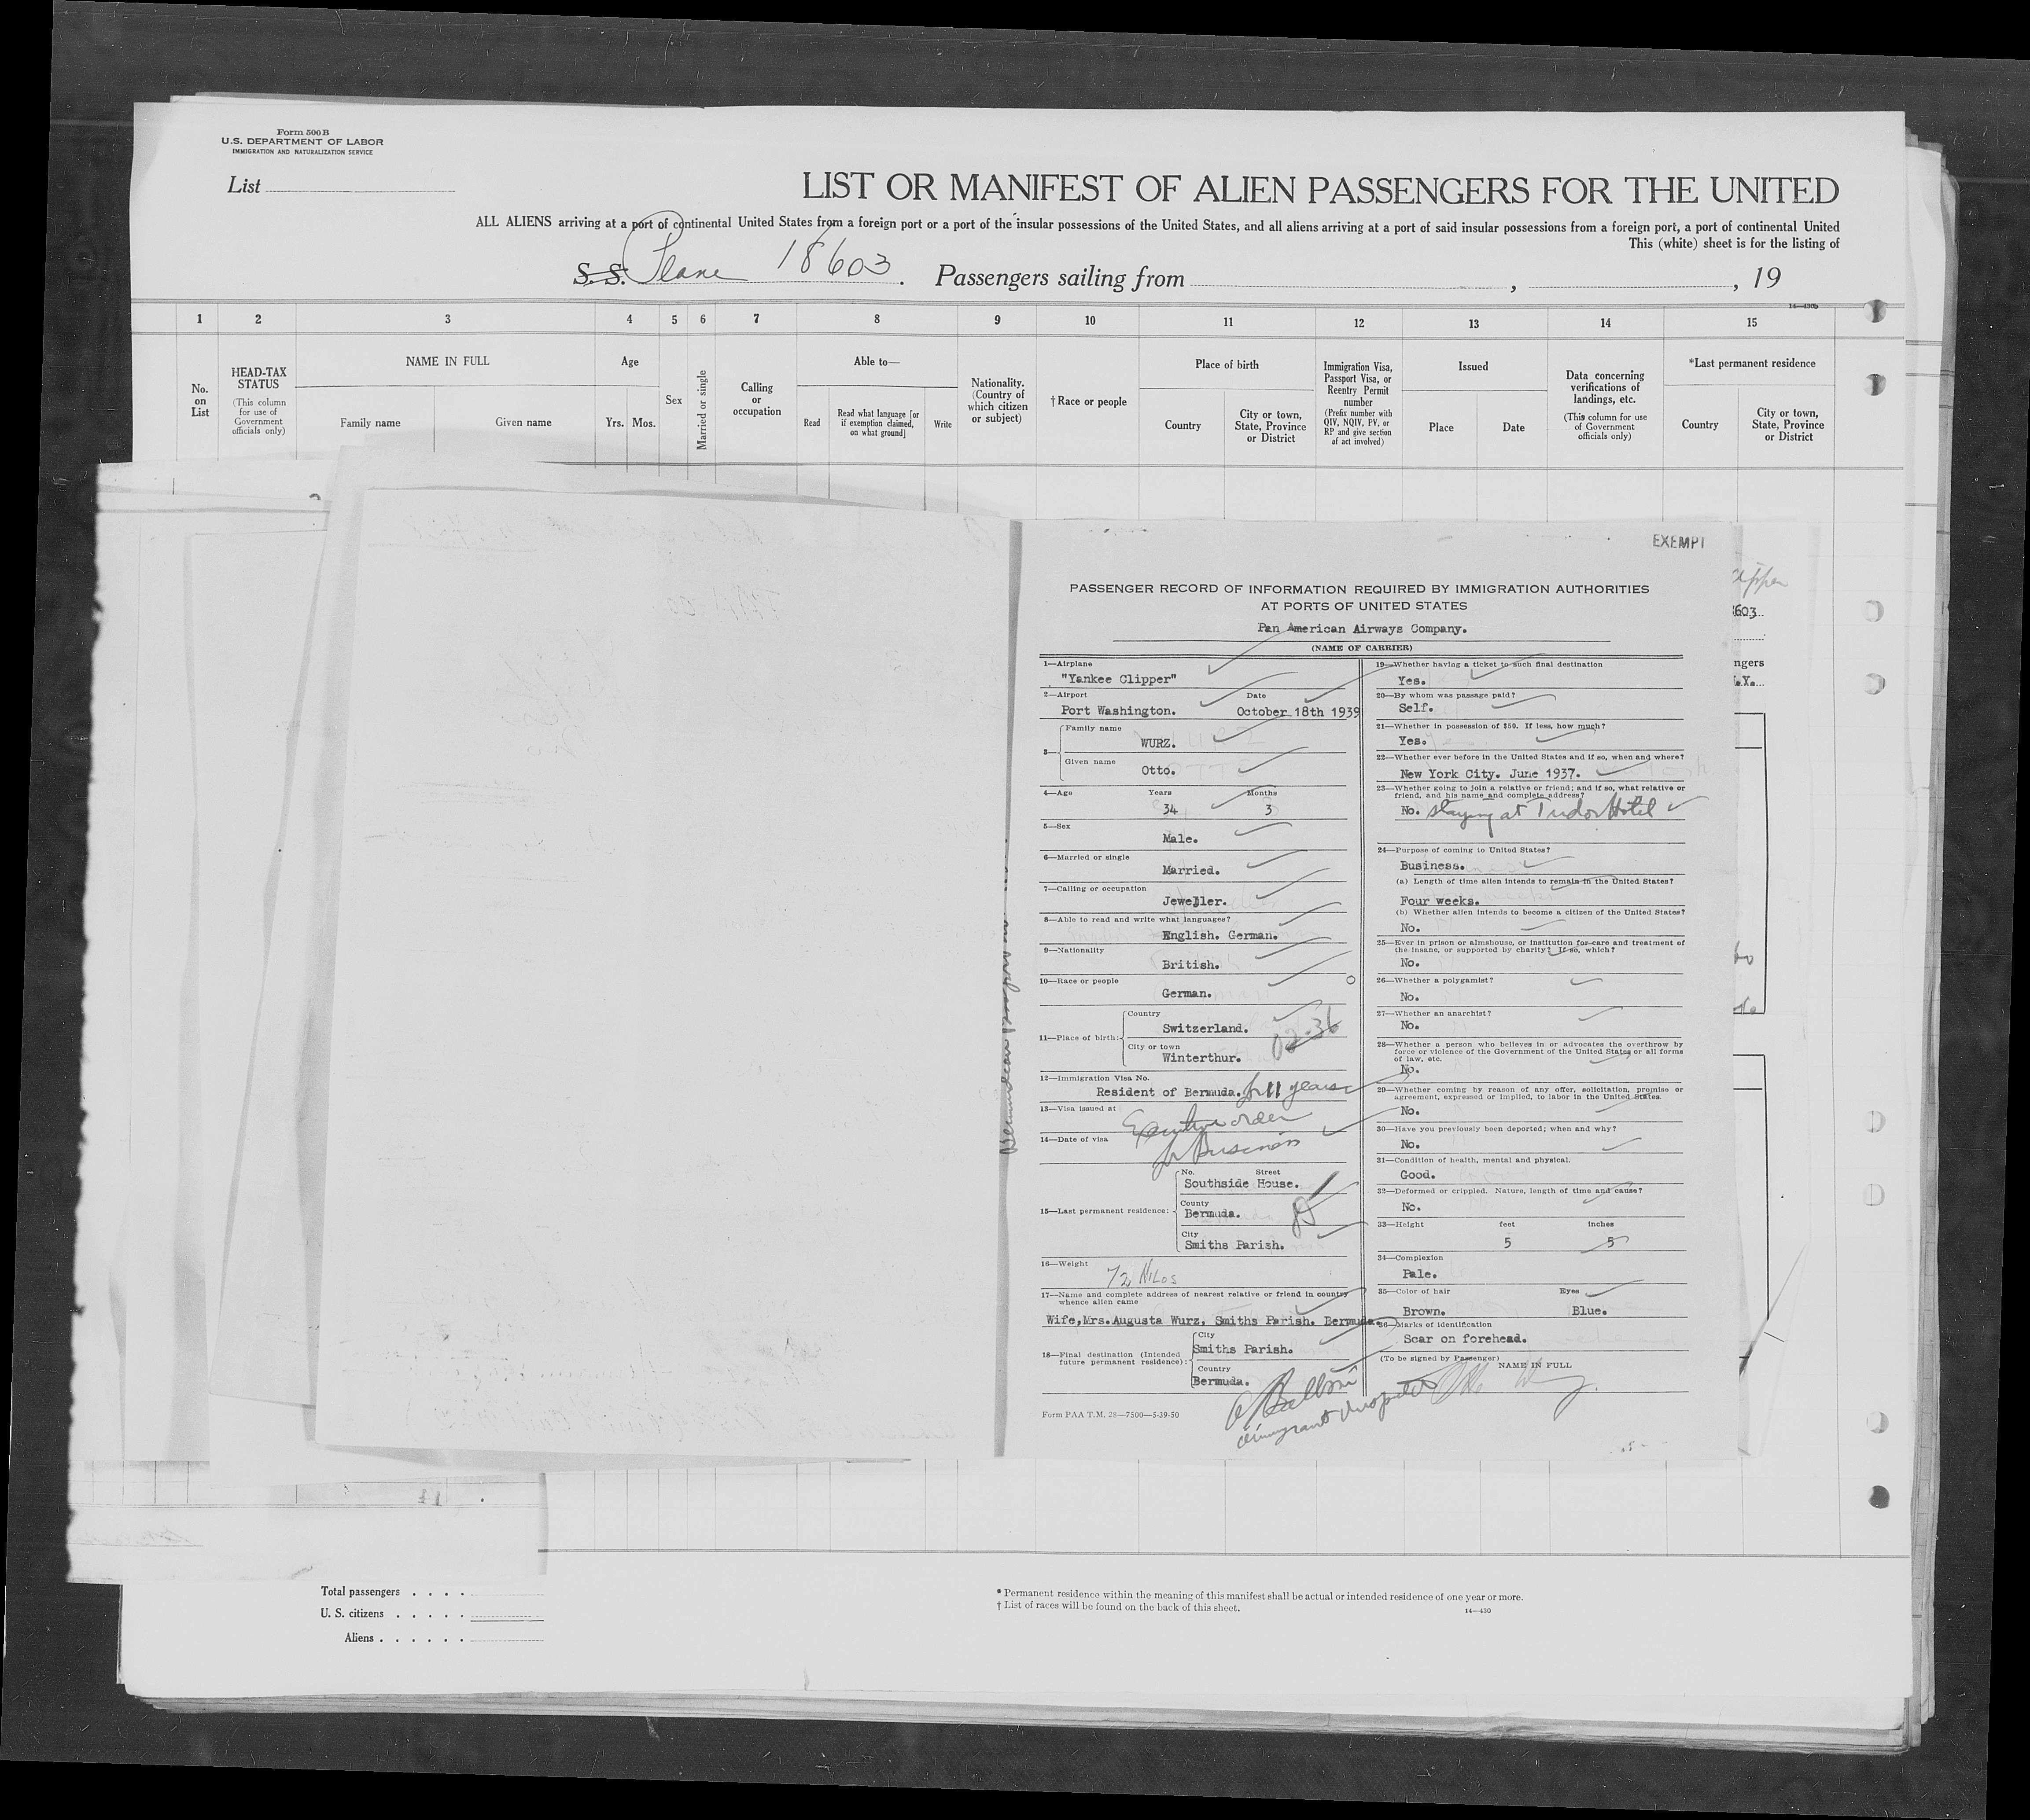 Form 500 B
U.S. DEPARTMENT OF LABOR
IMMIGRATION AND NATURALIZATION SERVICE
List
LIST OR MANIFEST OF ALIEN PASSENGERS FOR THE UNITED
ALL ALIENS arriving at a port of continental United States from a foreign port or a port of the insular possessions of the United States, and all aliens arriving at a port of said insular possessions from a foreign port, a port of continental United
This (white) sheet is for the listing of
S. S. Plane 18603. Passengers sailing from , , 19
1 2 3 4 5 6 7 8 9 10 11 12 13 14 15
No. on List
HEAD-TAX STATUS
(This column for use of Government officials only)
NAME IN FULL
Family name Given name
Age
Yrs. Mos.
Sex
Married or single
Calling or occupation
Able to—
Read
Read what language [or if exemption claimed, on what ground]
Write
Nationality. (Country of which citizen or subject)
†Race or people
Place of birth
Country
City or town, State, Province or District
Immigration Visa, Passport Visa, or Reentry Permit number
(Prefix number with QIV, NQIV, PV, or RP and give section of act involved)
Issued
Place Date
Data concerning verifications of landings, etc.
(This column for use of Government officials only)
*Last permanent residence
Country
City or town, State, Province or District
EXEMPT
PASSENGER RECORD OF INFORMATION REQUIRED BY IMMIGRATION AUTHORITIES
AT PORTS OF UNITED STATES
Pan American Airways Company.
(NAME OF CARRIER)
1—Airplane
"Yankee Clipper"
2—Airport Date
Port Washington. October 18th 1939
3—
Family name
WURZ.
Given name
Otto.
4—Age Years Months
34 3
5—Sex
Male.
6—Married or single
Married.
7—Calling or occupation
Jeweller.
8—Able to read and write what languages?
English. German.
9—Nationality
British.
10—Race or people
German.
11—Place of birth:
Country
Switzerland.
City or town
Winterthur.
02-36
12—Immigration Visa No.
Resident of Bermuda. for 11 years
13—Visa issued at
Executive order
14—Date of visa
for Business
15—Last permanent residence:
No. Street
Southside House.
County
Bermuda.
City
Smiths Parish.
16—Weight
72 KILOS
17—Name and complete address of nearest relative or friend in country
whence alien came
Wife,Mrs.Augusta Wurz, Smiths Parish. Bermuda.
18—Final destination (Intended
future permanent residence):
City
Smiths Parish.
Country
Bermuda.
Form PAA T.M. 28—7500—5-39-50
19—Whether having a ticket to such final destination
Yes.
20—By whom was passage paid?
Self.
21—Whether in possession of $50. If less, how much?
Yes.
22—Whether ever before in the United States and if so, when and where?
New York City. June 1937.
23—Whether going to join a relative or friend; and if so, what relative or
friend, and his name and complete address?
No. staying at Tudor Hotel
24—Purpose of coming to United States?
Business.
(a) Length of time alien intends to remain in the United States?
Four weeks.
(b) Whether alien intends to become a citizen of the United States?
No.
25—Ever in prison or almshouse, or institution for care and treatment of
the insane, or supported by charity? If so, which?
No.
26—Whether a polygamist?
No.
27—Whether an anarchist?
No.
28—Whether a person who believes in or advocates the overthrow by
force or violence of the Government of the United States or all forms
of law, etc.
No.
29—Whether coming by reason of any offer, solicitation, promise or
agreement, expressed or implied, to labor in the United States.
No.
30—Have you previously been deported; when and why?
No.
31—Condition of health, mental and physical.
Good.
32—Deformed or crippled. Nature, length of time and cause?
No.
33—Height feet inches
5 5
34—Complexion
Pale.
35—Color of hair Eyes
Brown. Blue.
36—Marks of identification
Scar on forehead.
(To be signed by Passenger)
NAME IN FULL
Immigrant Inspector
Total passengers . . . .
U. S. citizens . . . . .
Aliens . . . . . .
* Permanent residence within the meaning of this manifest shall be actual or intended residence of one year or more.
† List of races will be found on the back of this sheet.
14—430